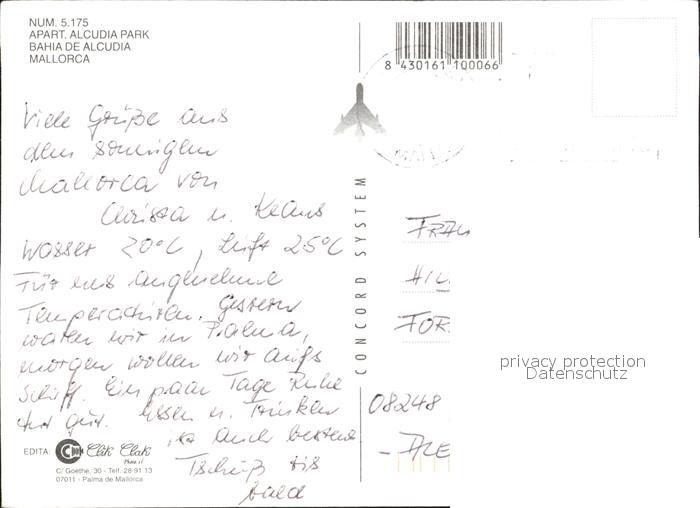 NUM. 5.175
APART. ALCUDIA PARK
BAHIA DE ALCUDIA
MALLORCA
8 430161 100066
Viele Grüße aus
dem sonnigen
Mallorca von
Christa u. Klaus
Wasser 20°C, Luft 25°C
Für uns angenehme
Temperaturen. Gestern
waren wir in Palma,
morgen wollen wir aufs
Schiff. Ein paar Tage Ruhe
tut gut. Essen u. Trinken
ist auch bestens
Tschüß bis
bald
CONCORD SYSTEM
FRAU
HIL
FOR
08248
privacy protection
Datenschutz
EDITA: Clik Clak
C/ Goethe, 30 - Telf. 28 91 13
07011 - Palma de Mallorca